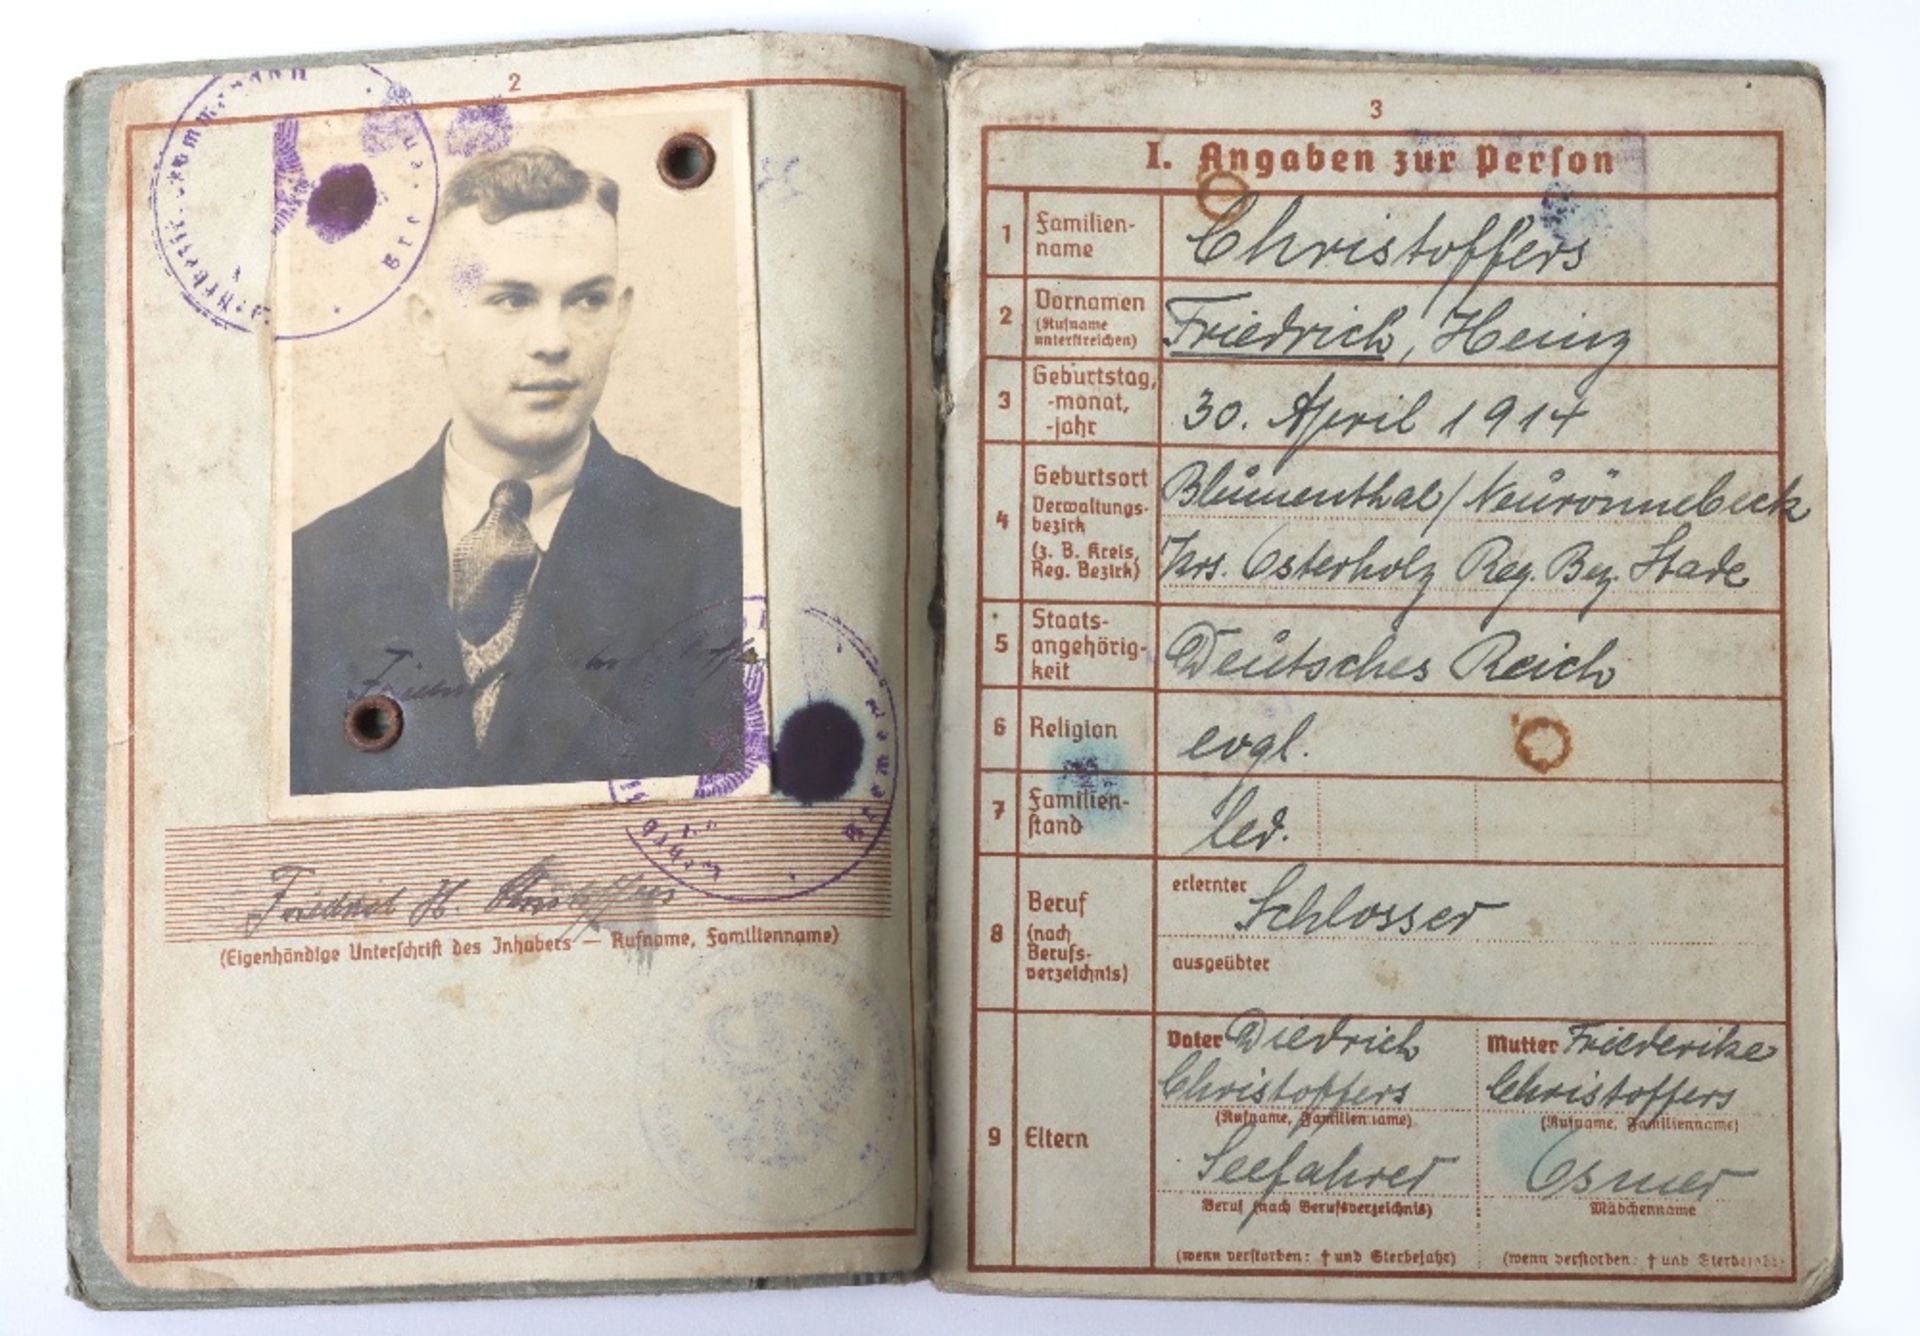 2
Bremen
Friedrich H. Christoffers
(Eigenhändige Unterschrift des Inhabers — Rufname, Familienname)
Bremen
3
I. Angaben zur Person
1 Familien-
name
Christoffers
2 Vornamen
(Rufname
unterstreichen)
Friedrich, Heinz
3 Geburtstag,
-monat,
-jahr
30. April 1914
4 Geburtsort
Verwaltungs-
bezirk
(z. B. Kreis,
Reg. Bezirk)
Blumenthal / Neurönnebeck
Krs. Osterholz Reg. Bez. Stade
5 Staats-
angehörig-
keit
Deutsches Reich
6 Religion
evgl.
7 Familien-
stand
led.
8 Beruf
(nach
Berufs-
verzeichnis)
erlernter Schlosser
ausgeübter
9 Eltern
Vater Diedrich
Christoffers
(Rufname, Familienname)
Seefahrer
Beruf (nach Berufsverzeichnis)
(wenn verstorben: † und Sterbejahr)
Mutter Friederike
Christoffers
(Rufname, Familienname)
Osmer
Mädchenname
(wenn verstorben: † und Sterbejahr)